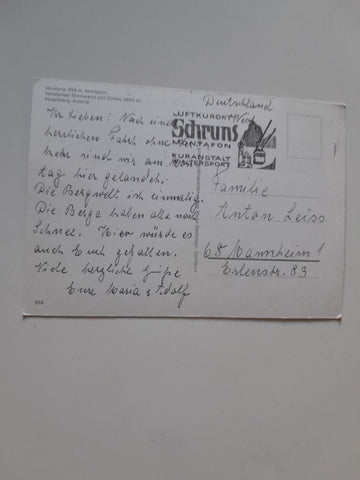 Vandans, 648 m, Montafon,
Vandanser Steinwand und Zimba, 2643 m,
Vorarlberg, Austria
Ihr Lieben! Nach einer
herrlichen Fahrt ohne
sind wir am
tag hier gelandet.
Die Bergwelt ist einmalig.
Die Berge haben alle noch
Schnee. Hier würde es
auch Euch gefallen.
Viele herzliche Grüße
Eure Maria & Adolf
958
Deutschland
LUFTKURORT
Schruns
MONTAFON
KURANSTALT
WINTERSPORT
Familie
Anton Leiss
68 Mannheim 1
Erlenstr. 83